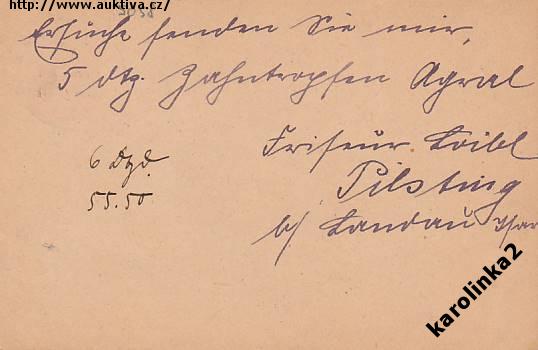 http://www.auktiva.cz/
Ersuche senden Sie mir,
5 dtz. Zahntropfen Agral
Friseur Loibl
Pilsting
b/ Landau Isar
6 Dzd.
55.50
karolinka2